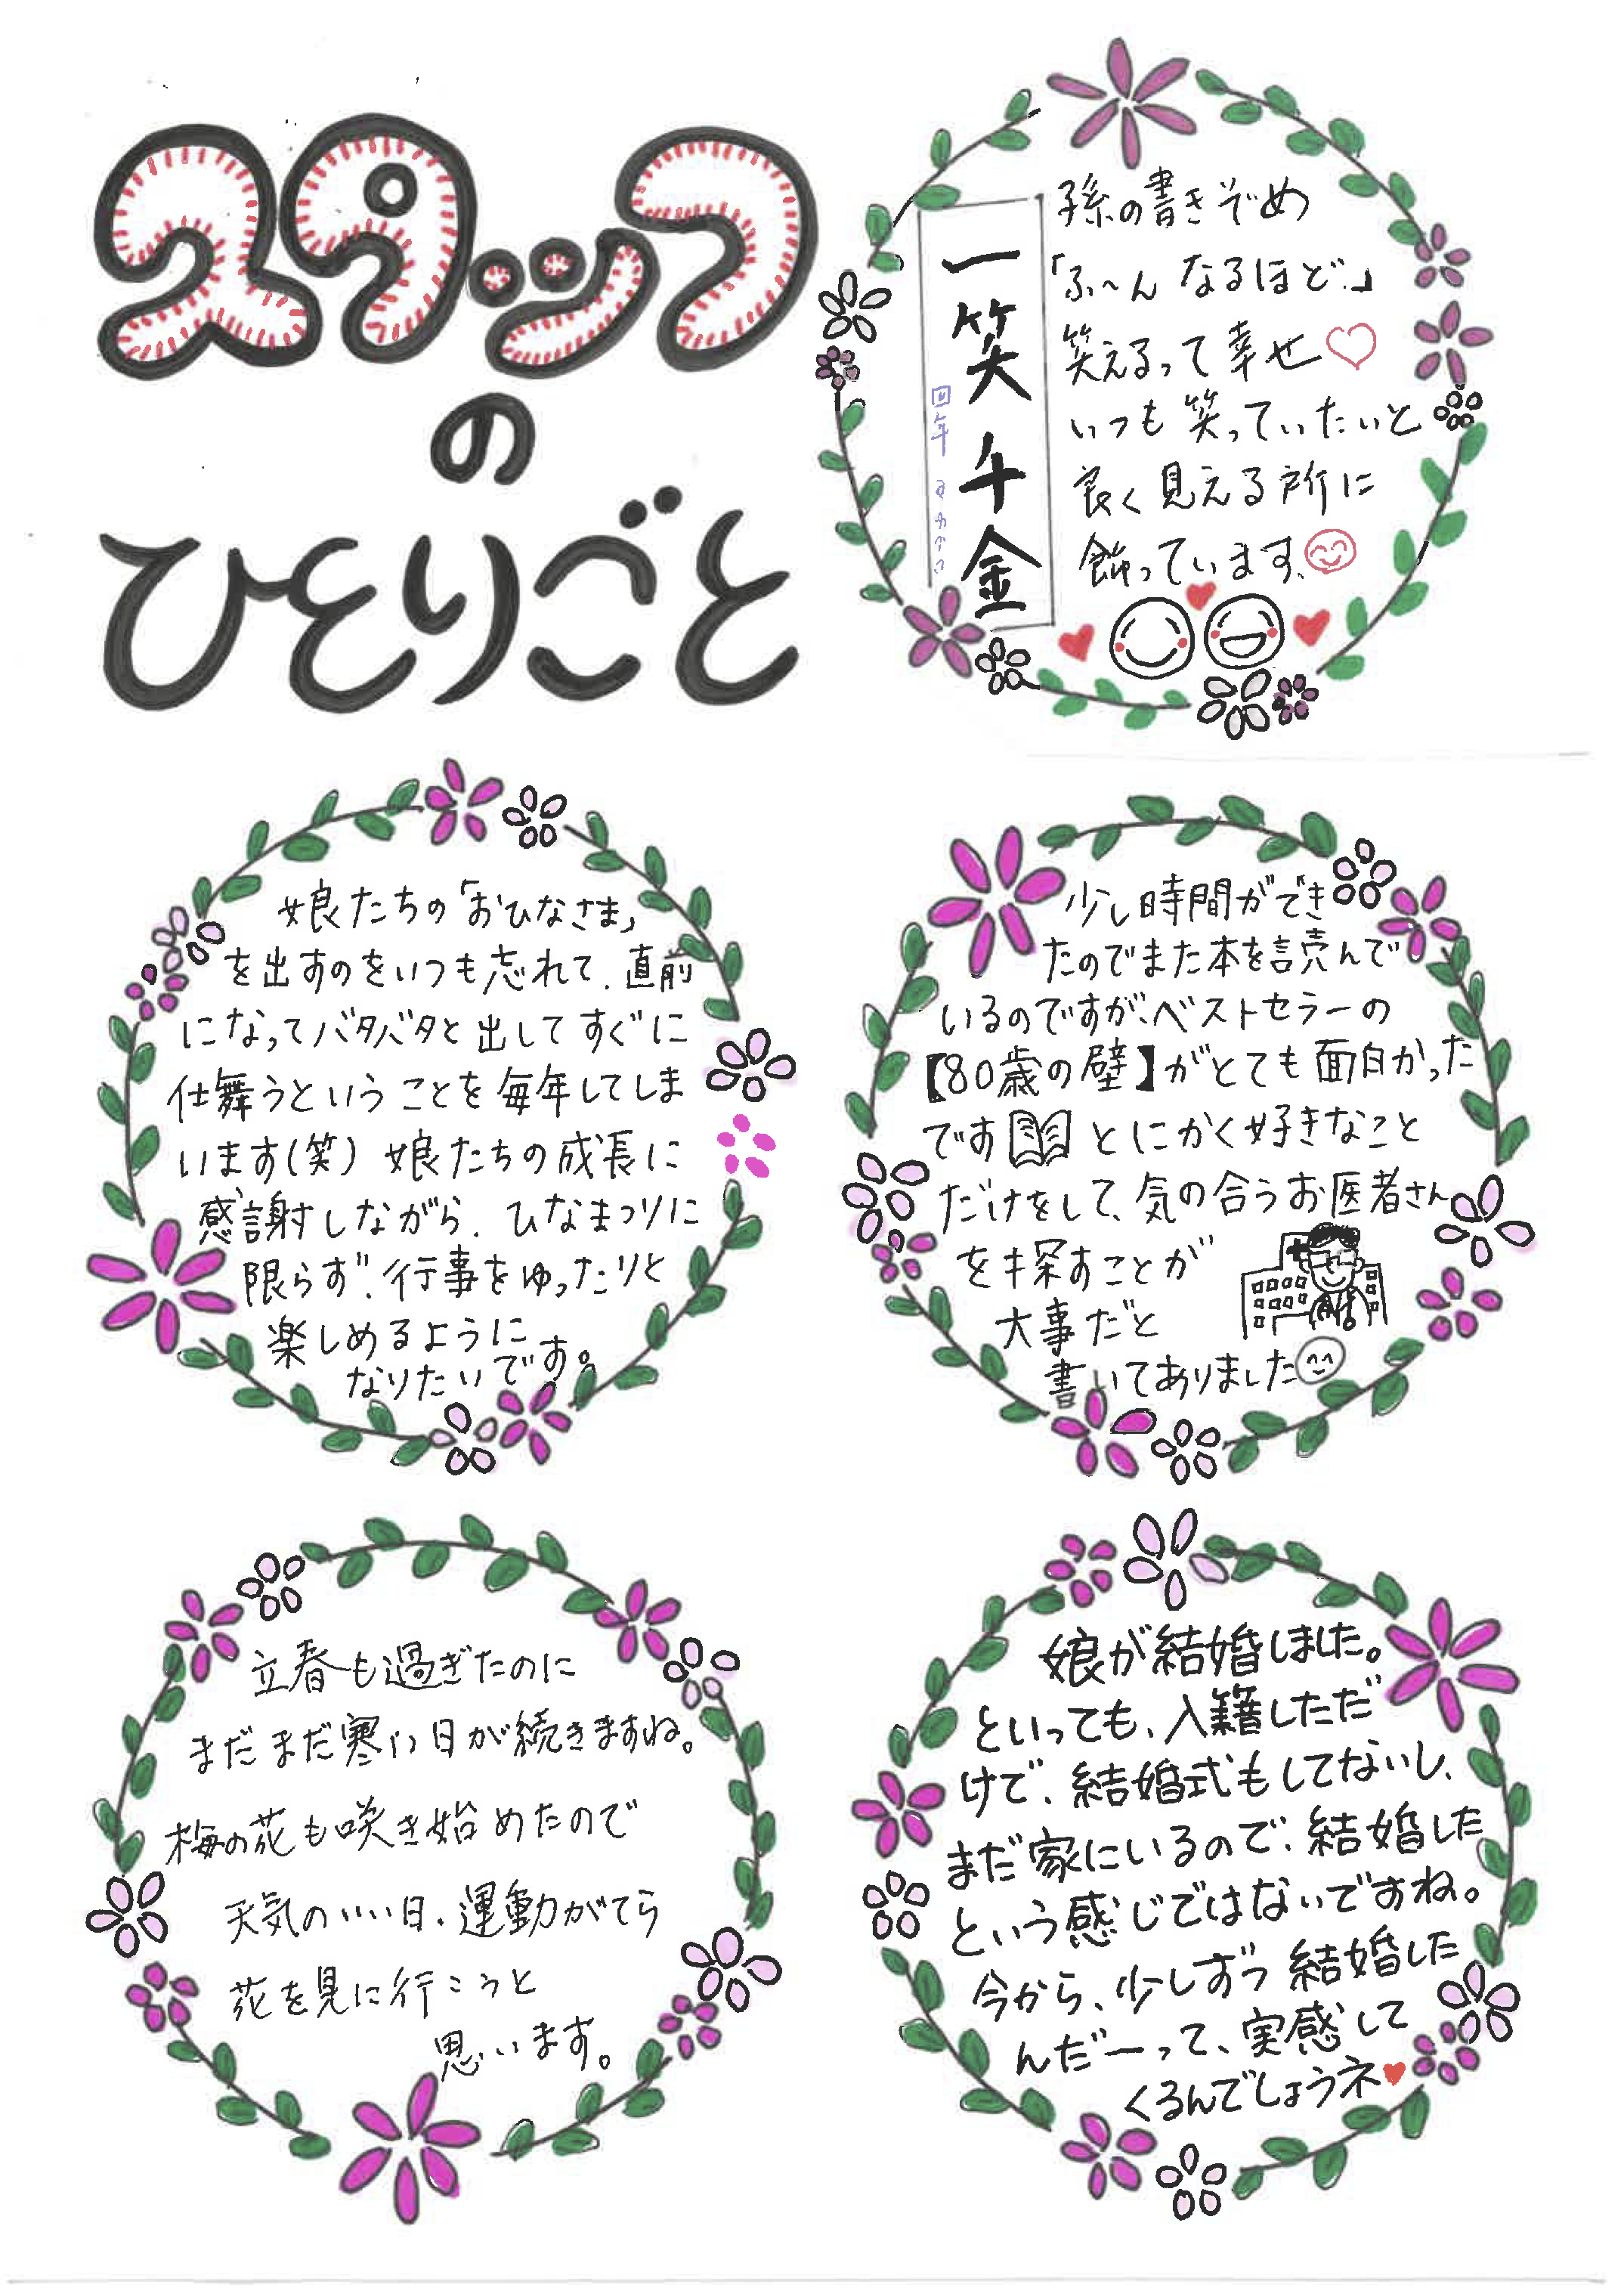 スタッフ
の
ひとりごと
孫の書きぞめ
「ふ〜ん なるほど。」
笑えるって幸せ♡
いつも笑っていたいと
良く見える所に
飾っています。
一笑千金
四年
娘たちの「おひなさま」
を出すのをいつも忘れて、直前
になってバタバタと出してすぐに
仕舞うということを毎年してしま
います(笑) 娘たちの成長に
感謝しながら、ひなまつりに
限らず、行事をゆったりと
楽しめるように
なりたいです。
少し時間ができ
たのでまた本を読んで
いるのですが、ベストセラーの
【80歳の壁】がとても面白かった
です とにかく好きなこと
だけをして、気の合うお医者さん
を探すことが
大事だと
書いてありました
立春も過ぎたのに
まだまだ寒い日が続きますね。
梅の花も咲き始めたので
天気のいい日、運動がてら
花を見に行こうと
思います。
娘が結婚しました。
といっても、入籍しただ
けで、結婚式もしてないし、
まだ家にいるので、結婚した
という感じではないですね。
今から、少しずつ結婚した
んだーって、実感して
くるんでしょうネ♥